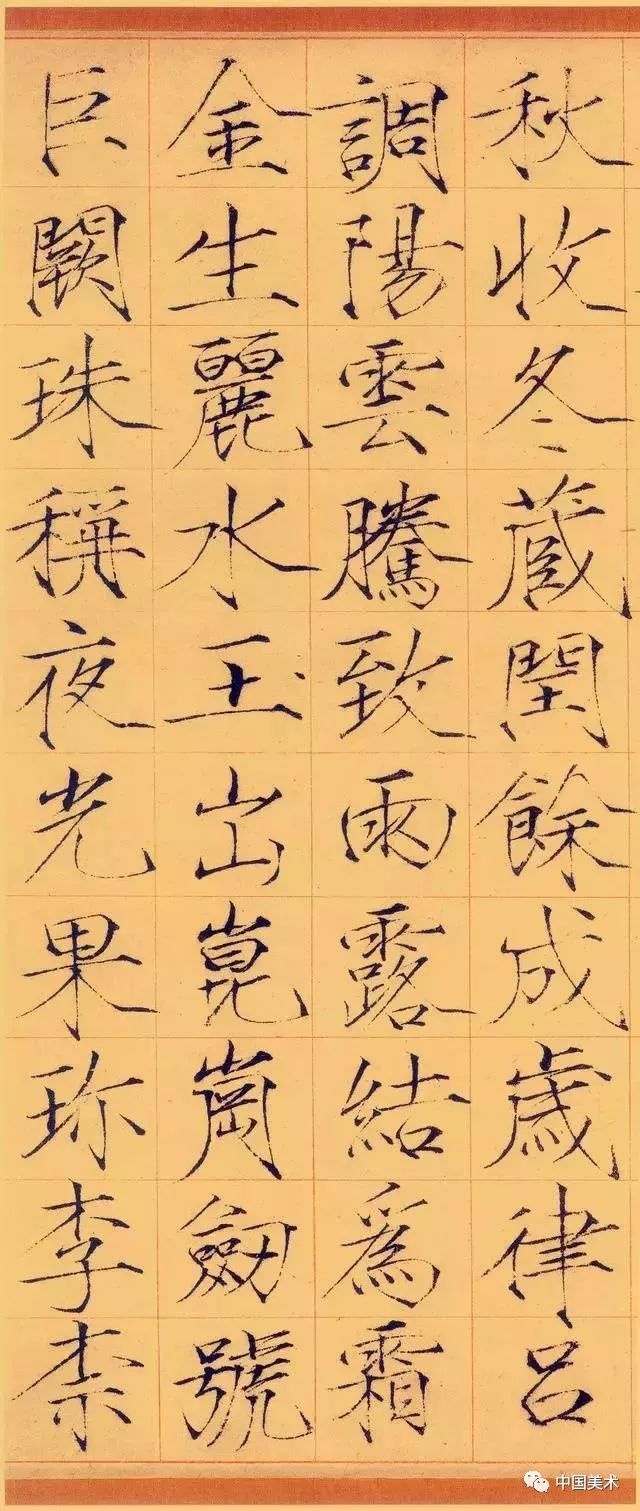 秋收冬蔵閏餘成歳律呂
調陽雲騰致雨露結爲霜
金生麗水玉出崑崗劒號
巨闕珠稱夜光果珎李柰
中国美术